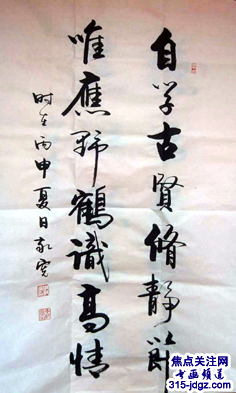 自学古賢脩静節
唯應野鶴識高情
时在丙申夏日
焦点关注网
书画频道
315-jdgz.com